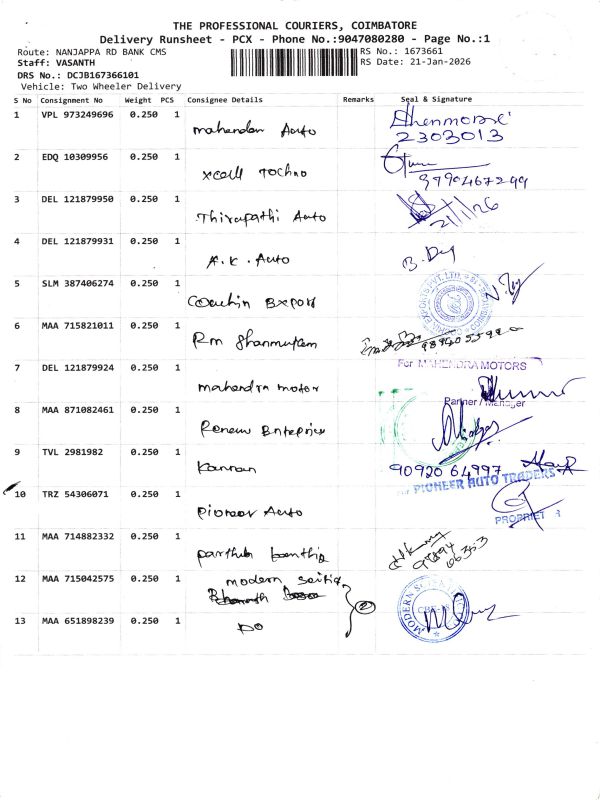 THE PROFESSIONAL COURIERS, COIMBATORE
Delivery Runsheet - PCX - Phone No.:9047080280 - Page No.:1
Route: NANJAPPA RD BANK CMS RS No.: 1673661
Staff: VASANTH RS Date: 21-Jan-2026
DRS No.: DCJB167366101
Vehicle: Two Wheeler Delivery
S No Consignment No Weight PCS Consignee Details Remarks Seal & Signature
1 VPL 973249696 0.250 1 mahendar Auto
2303013
2 EDQ 10309956 0.250 1 xcell Techno
9790467299
3 DEL 121879950 0.250 1 Thirupathi Auto 21/1/26
4 DEL 121879931 0.250 1 A.K. Auto
5 SLM 387406274 0.250 1 Export
6 MAA 715821011 0.250 1 Rm Shanmugam
7 DEL 121879924 0.250 1 mahendra motor For MAHENDRA MOTORS
Partner / Manager
8 MAA 871082461 0.250 1 Renew Enteprise
9 TVL 2981982 0.250 1 Kannan 90920 64997
10 TRZ 54306071 0.250 1 Pioneer Auto For PIONEER AUTO TRADERS
PROPRIETOR
11 MAA 714882332 0.250 1 parthib
12 MAA 715042575 0.250 1 modern
13 MAA 651898239 0.250 1 DO 2